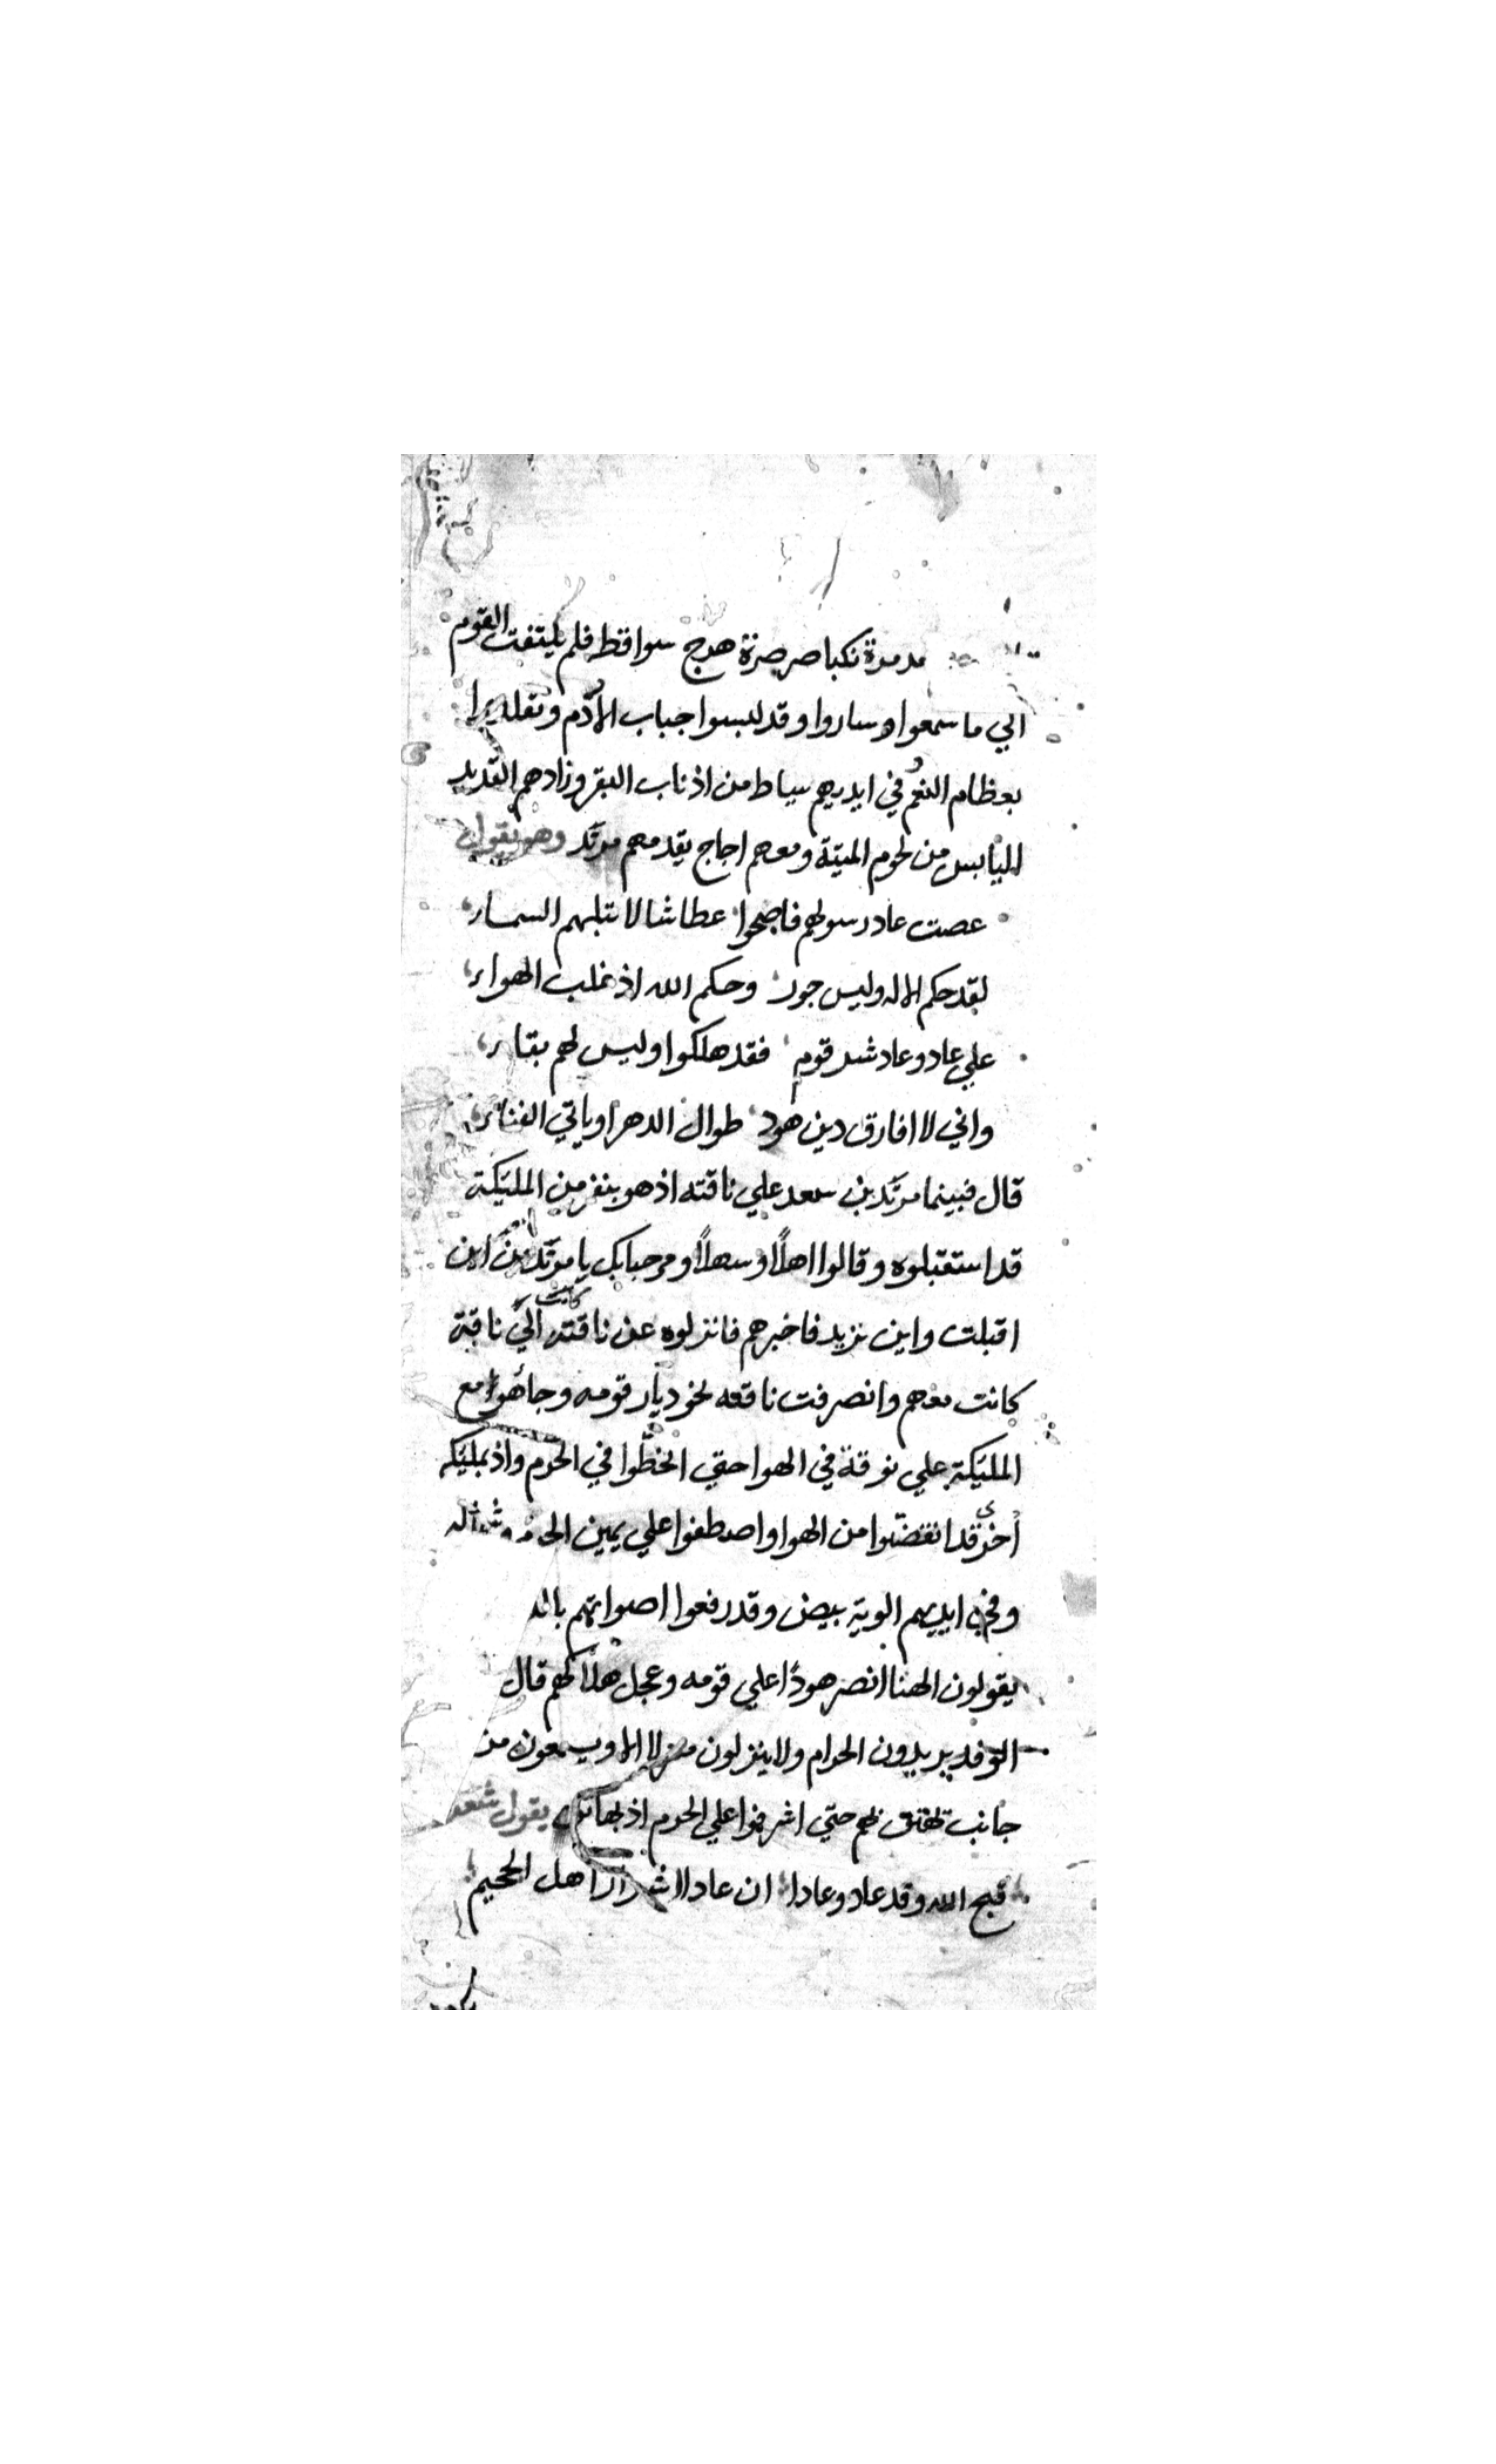 مدمرة نكبا صرصرة هدج سواقط فلم يلتفت القوم
الي ما سمعوا وساروا وقد لبسوا جباب الادم وتقلدوا
بعظام النعم وفي ايديهم سياط من اذناب البقر وزادهم القديد
اليابس من لحوم الميتة ومعهم اجاج يقدمهم مرثد وهو يقول
عصت عاد رسولهم فاضحوا عطاشا لا تبلهم السماء
لقد حكم الاله وليس جور وحكم الله اذ غلب الهواء
علي عاد وعاد شر قوم فقد هلكوا وليس لهم بقاء
واني لا افارق دين هود طوال الدهر او ياتي الفناء
قال فبينما مرثد بن سعد علي ناقته اذ هو بنفر من المليكة
قد استقبلوه وقالوا اهلاً وسهلاً ومرحبا بك يا مرثد من اين
اقبلت واين تريد فاخبرهم فانزلوه عن ناقته الي ناقة
كانت معهم وانصرفت ناقته نحو ديار قومه وجا هو مع
المليكة علي نوقة في الهوا حتي انحطوا في الحرم واذ بمليكه
أخرى قد انقضّوا من الهوا واصطفوا علي يمين الحرم وشماله
وفي ايديهم الوية بيض وقد رفعوا اصواتهم
يقولون الهنا انصر هودًا علي قومه وعجل هلاكهم قال
الوفد يريدون الحرام ولا ينزلون منزلا الا ويسمعون من
جانب تهتف بهم حتي اشرفوا علي الحرم اذ بهاتف يقول شعر
قبح الله وفد عاد وعادا ان عادا اشر اهل الجحيم